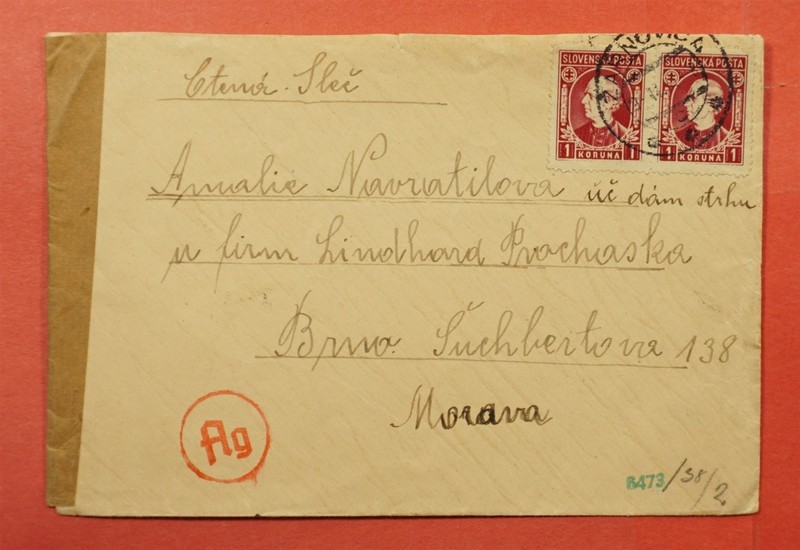 NOVICA
SLOVENSKÁ POŠTA SLOVENSKÁ POŠTA
1 KORUNA 1 1 KORUNA 1
Ctená Sleč
Amalie Navratilova uč dám strhu
u firm Lindhard Prochaska
Brno. Šuchbertova 138
Morava
Ag
6473/38/2